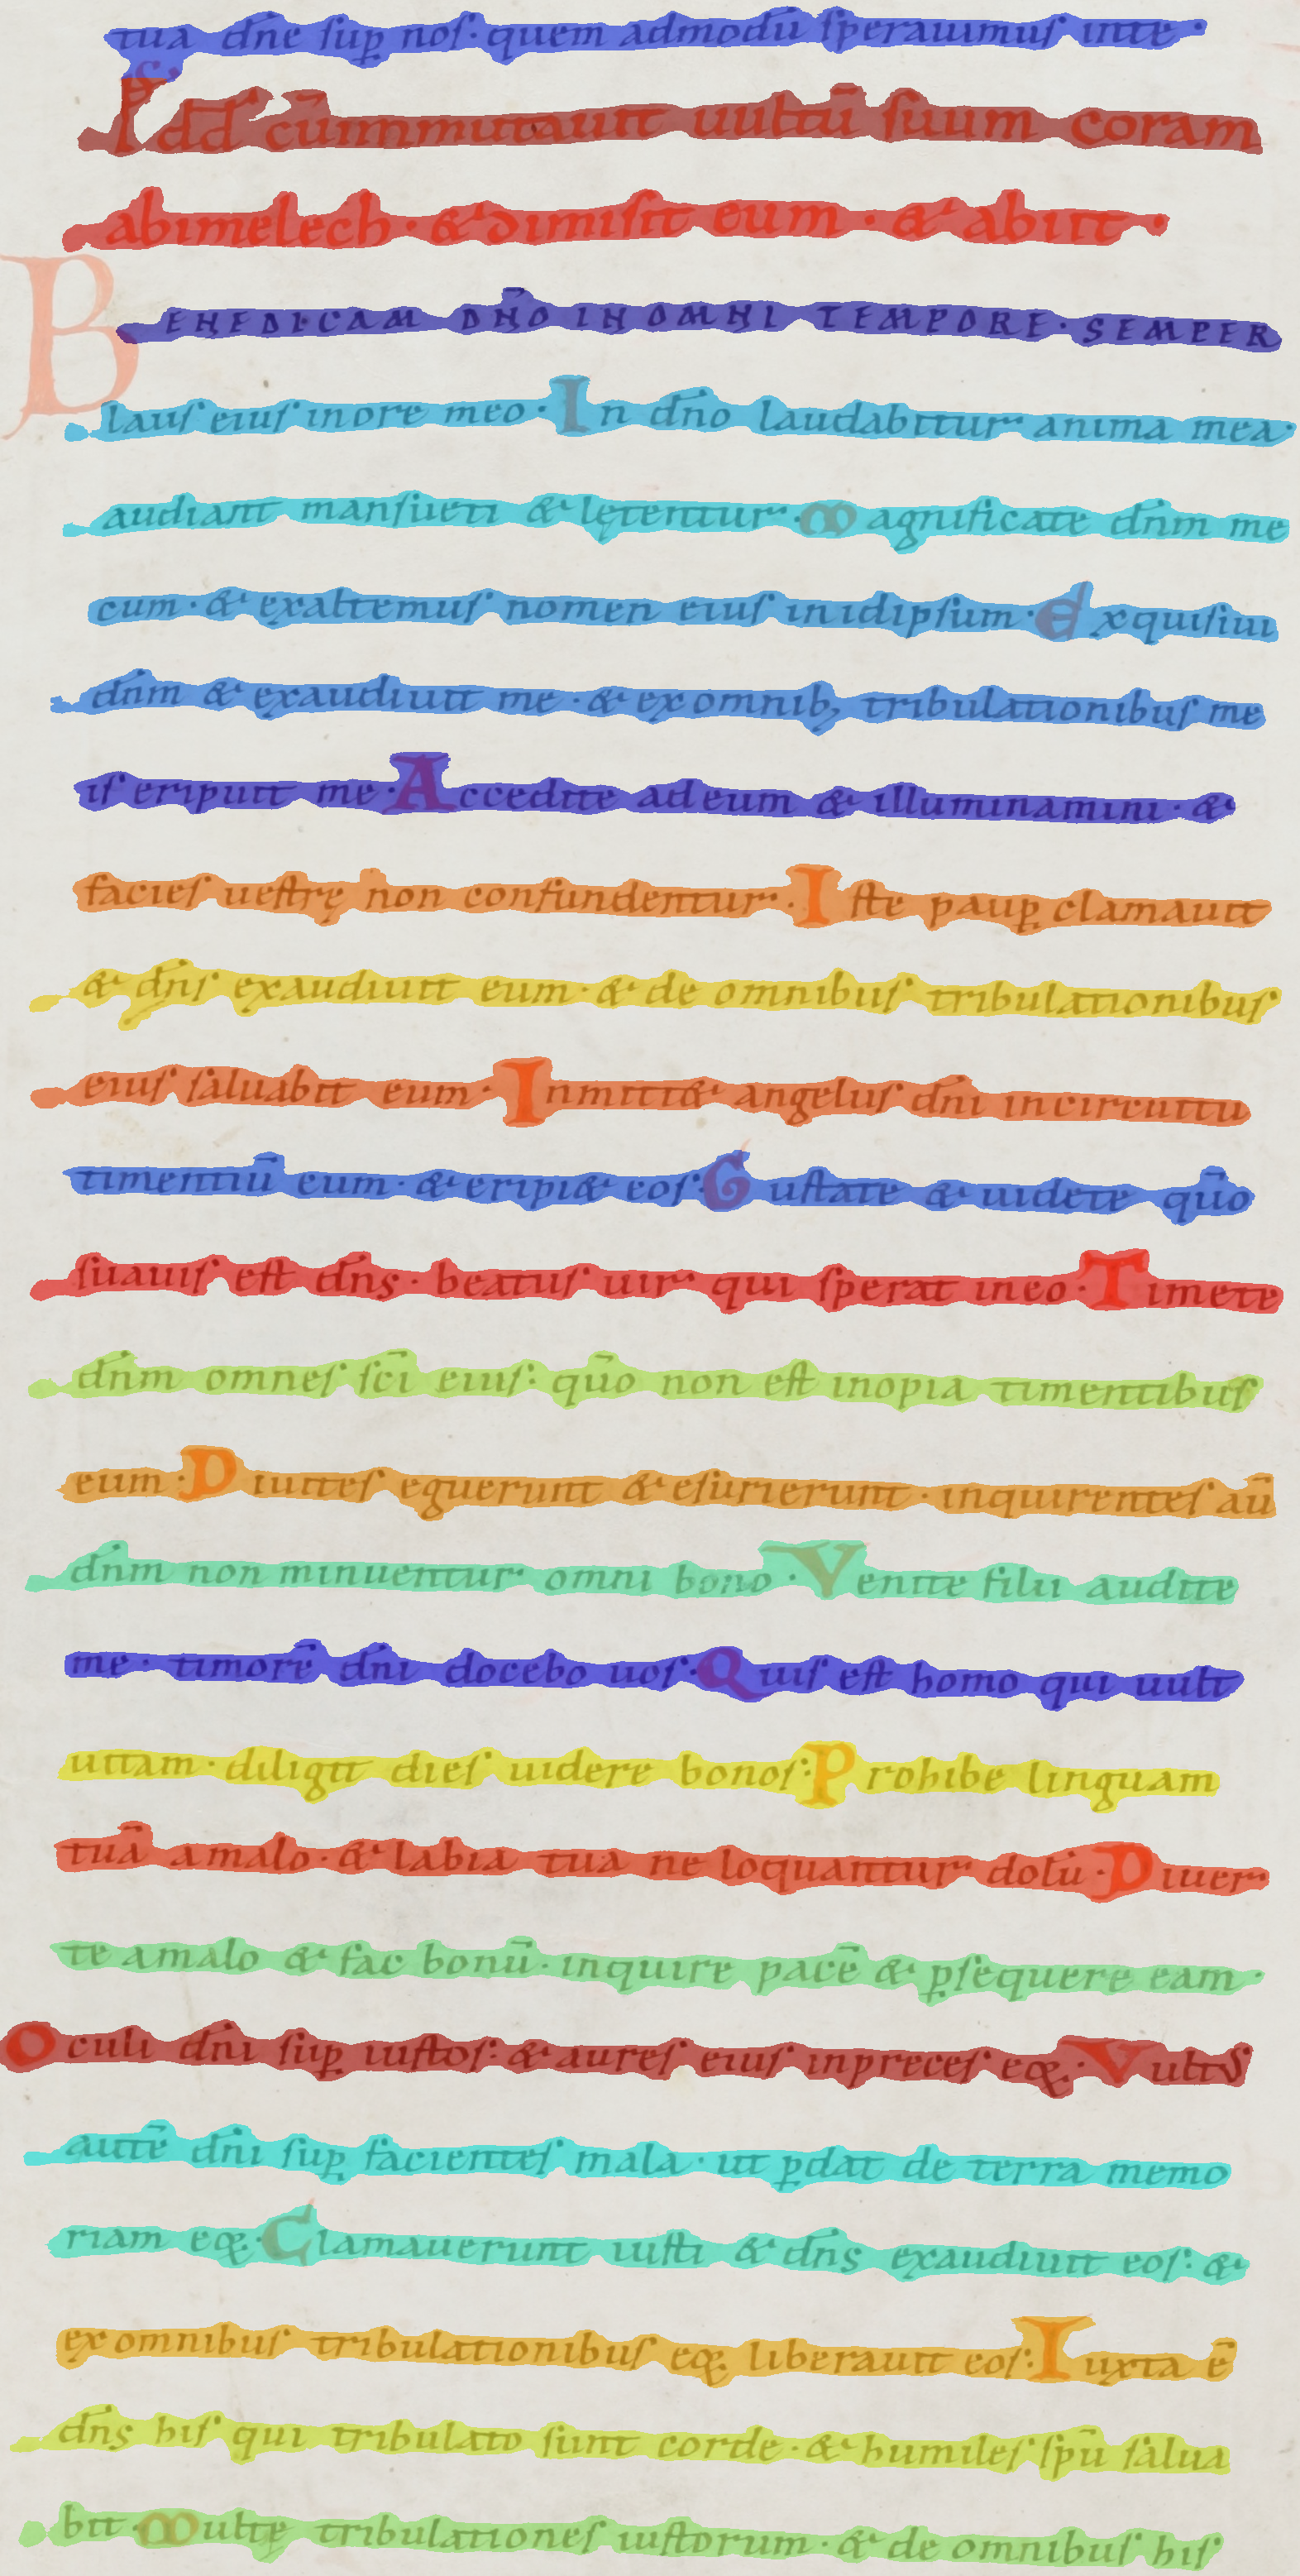 tua dñe sup̱ nos· quem admodū sperauimus inte·
Ps dd cūmmutauit uultū suum coram
abimelech· & dimisit eum· & abiit·
BENEDICAM DÑO IN OMNI TEMPORE· SEMPER
laus eius in ore meo· In dño laudabitur anima mea·
audiant mansueti & lętentur· Magnificate dñm me
cum· & exaltemus nomen eius inidipsum· Exquisiui
dñm & exaudiuit me· & ex omnib; tribulationibus me
is eripuit me· Accedite ad eum & illuminamini· &
facies uestrę non confundentur· Iste paup̱ clamauit
& dñs exaudiuit eum· & de omnibus tribulationibus
eius saluabit eum· Inmitt& angelus dñi incircuitu
timentiū eum· & eripi& eos· Gustate & uidete qūo
suauis est dñs· beatus uir qui sperat ineo· Timete
dñm omnes sc̄i eius: qūo non est inopia timentibus
eum· Diuites eguerunt & esurierunt· inquirentes aū
dñm non minuentur omni bono· Venite filii audite
me· timorē dñi docebo uos· Quis est homo qui uult
uitam· diligit dies uidere bonos: Prohibe linguam
tuā amalo· & labia tua ne loquantur dolū· Diuer
te amalo & fac bonū· inquire pacē & p̱sequere eam·
Oculi dñi sup̱ iustos: & aures eius inpreces eoꝝ· Vultus
autē dñi sup̱ facientes mala· ut p̱dat de terra memo
riam eoꝝ· Clamauerunt iusti & dñs exaudiuit eos: &
ex omnibus tribulationibus eoꝝ liberauit eos: Iuxta ē
dñs his qui tribulato sunt corde· & humiles sp̄u salua
bit· Multę tribulationes iustorum· & de omnibus his